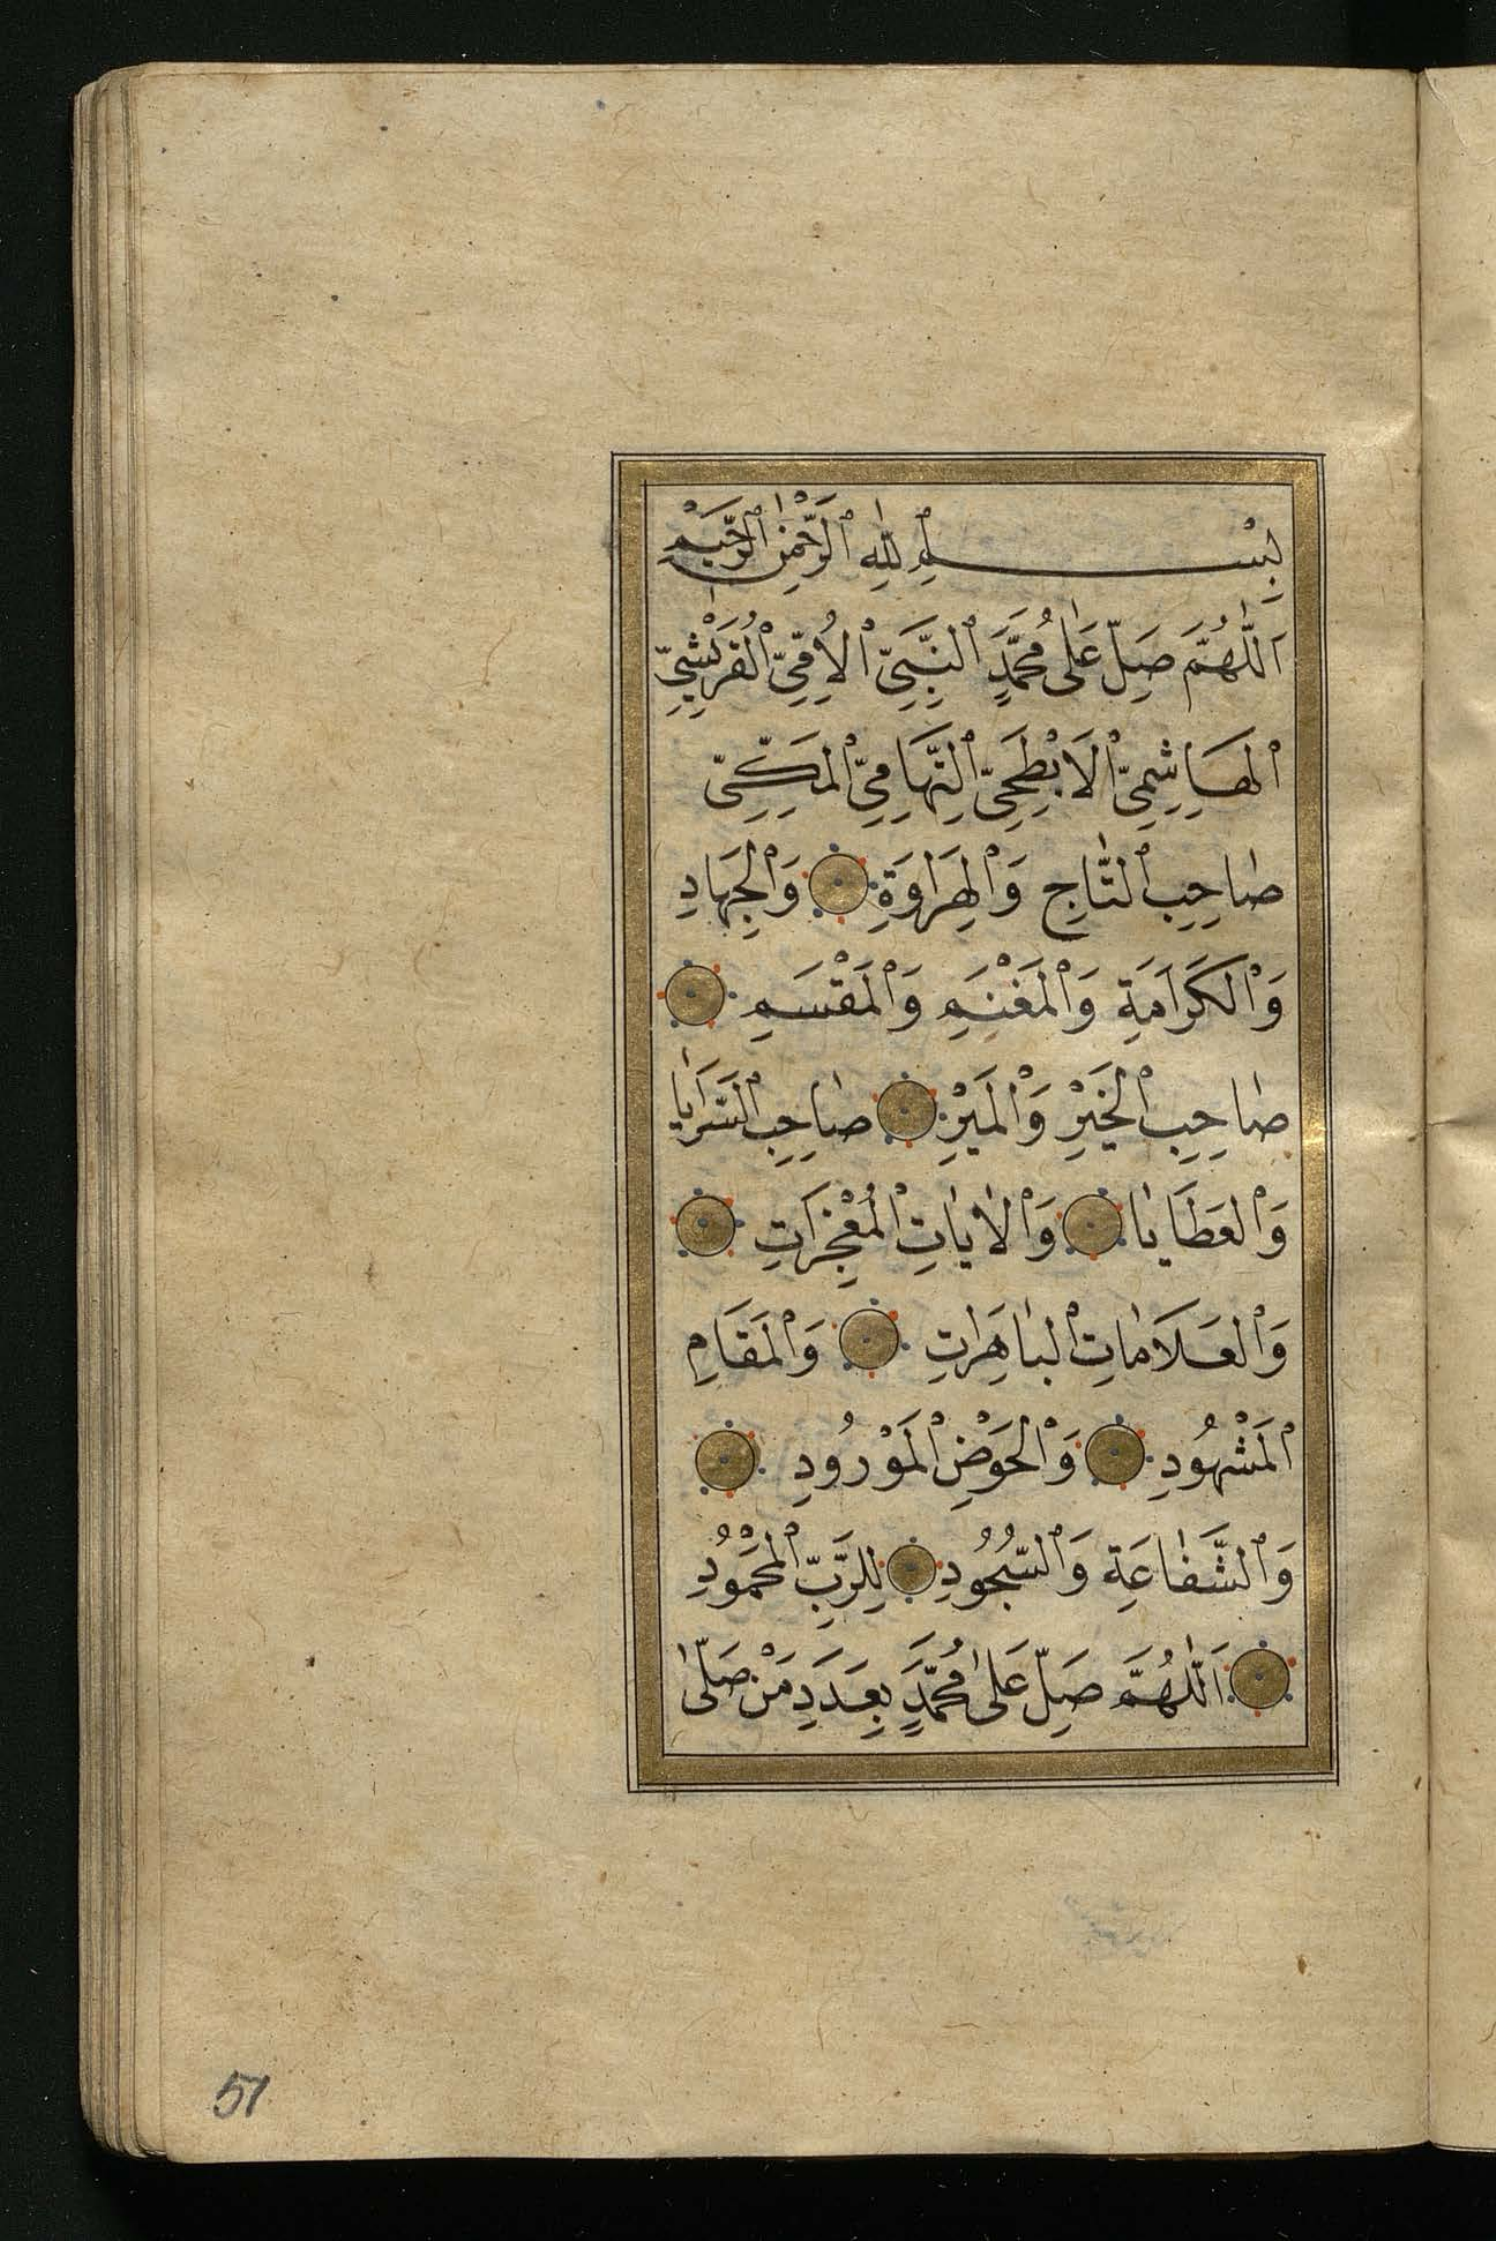 بِسْمِ اللّٰهِ الرَّحْمٰنِ الرَّحِيْمِ
اَللّٰهُمَّ صَلِّ عَلٰى مُحَمَّدٍ النَّبِيِّ الْاُمِّيِّ الْقُرَيْشِيِّ
الْهَاشِمِيِّ الْاَبْطَحِيِّ التِّهَامِيِّ الْمَكِّيِّ
صَاحِبِ التَّاجِ وَالْهِرَاوَةِ وَالْجِهَادِ
وَالْكَرَامَةِ وَالْمَغْنَمِ وَالْمَقْسَمِ
صَاحِبِ الْخَيْرِ وَالْمَيْرِ صَاحِبِ السَّرَايَا
وَالْعَطَايَا وَالْاٰيَاتِ الْمُعْجِزَاتِ
وَالْعَلَامَاتِ الْبَاهِرَاتِ وَالْمَقَامِ
الْمَشْهُودِ وَالْحَوْضِ الْمَوْرُودِ
وَالشَّفَاعَةِ وَالسُّجُودِ لِلرَّبِّ الْمَحْمُودِ
اَللّٰهُمَّ صَلِّ عَلٰى مُحَمَّدٍ بِعَدَدِ مَنْ صَلّٰى
51